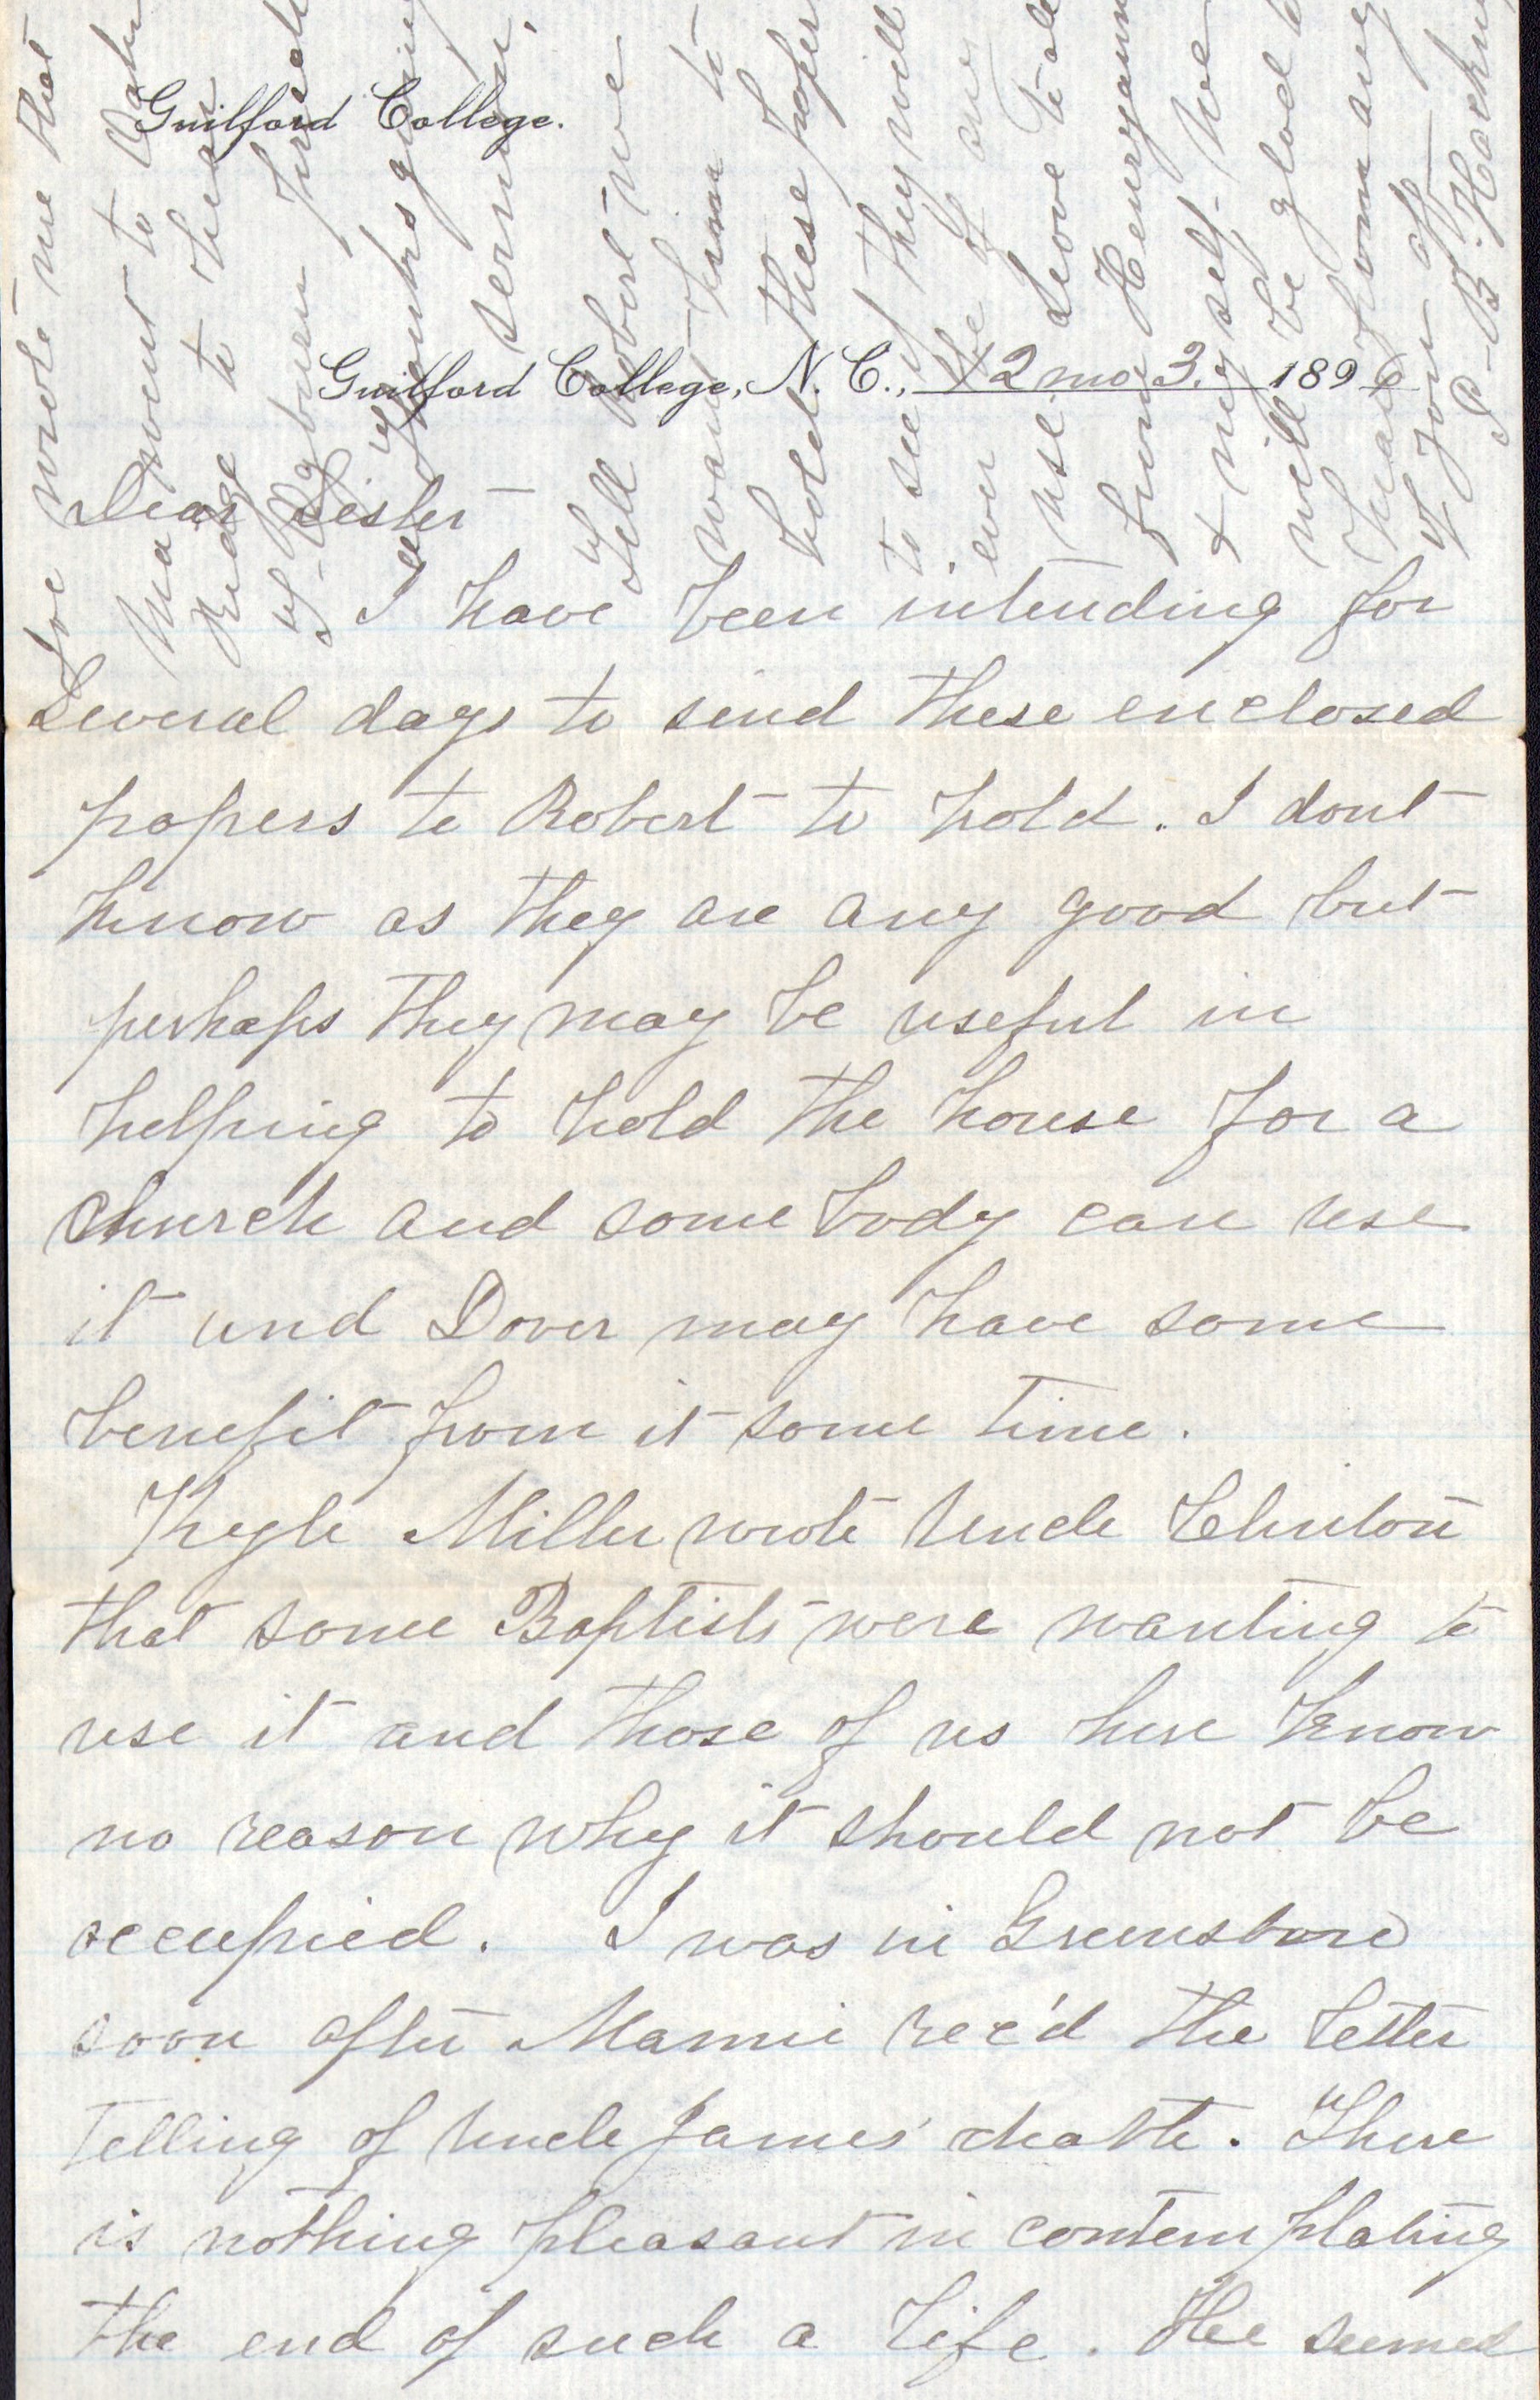 Guilford College.
Guilford College, N. C., 12 mo 3. 1896
Dear Sister
I have been intending for
Several days to send these enclosed
papers to Robert to hold. I dont
know as they are any good but
perhaps they may be useful in
helping to hold the house for a
Church and some body can use
it and Dover may have some
benefit from it some time.
Miller wrote Uncle Clinton
that some Baptists were wanting to
use it and those of us here know
no reason why it should not be
occupied. I was in Greensboro
soon after Mamie rec'd the letter
telling of Uncle James' death. There
is nothing pleasant in contemplating
the end of such a life. He seemed
wrote me that
Ma went to
Ridge to hear
sermon.
Tell Robert we
want him to
hold these papers
to see if they will
ever be of any
use. Love to all
from Henryanna
& my self. We
will be glad to
hear from any
of you
J. B. Hockett